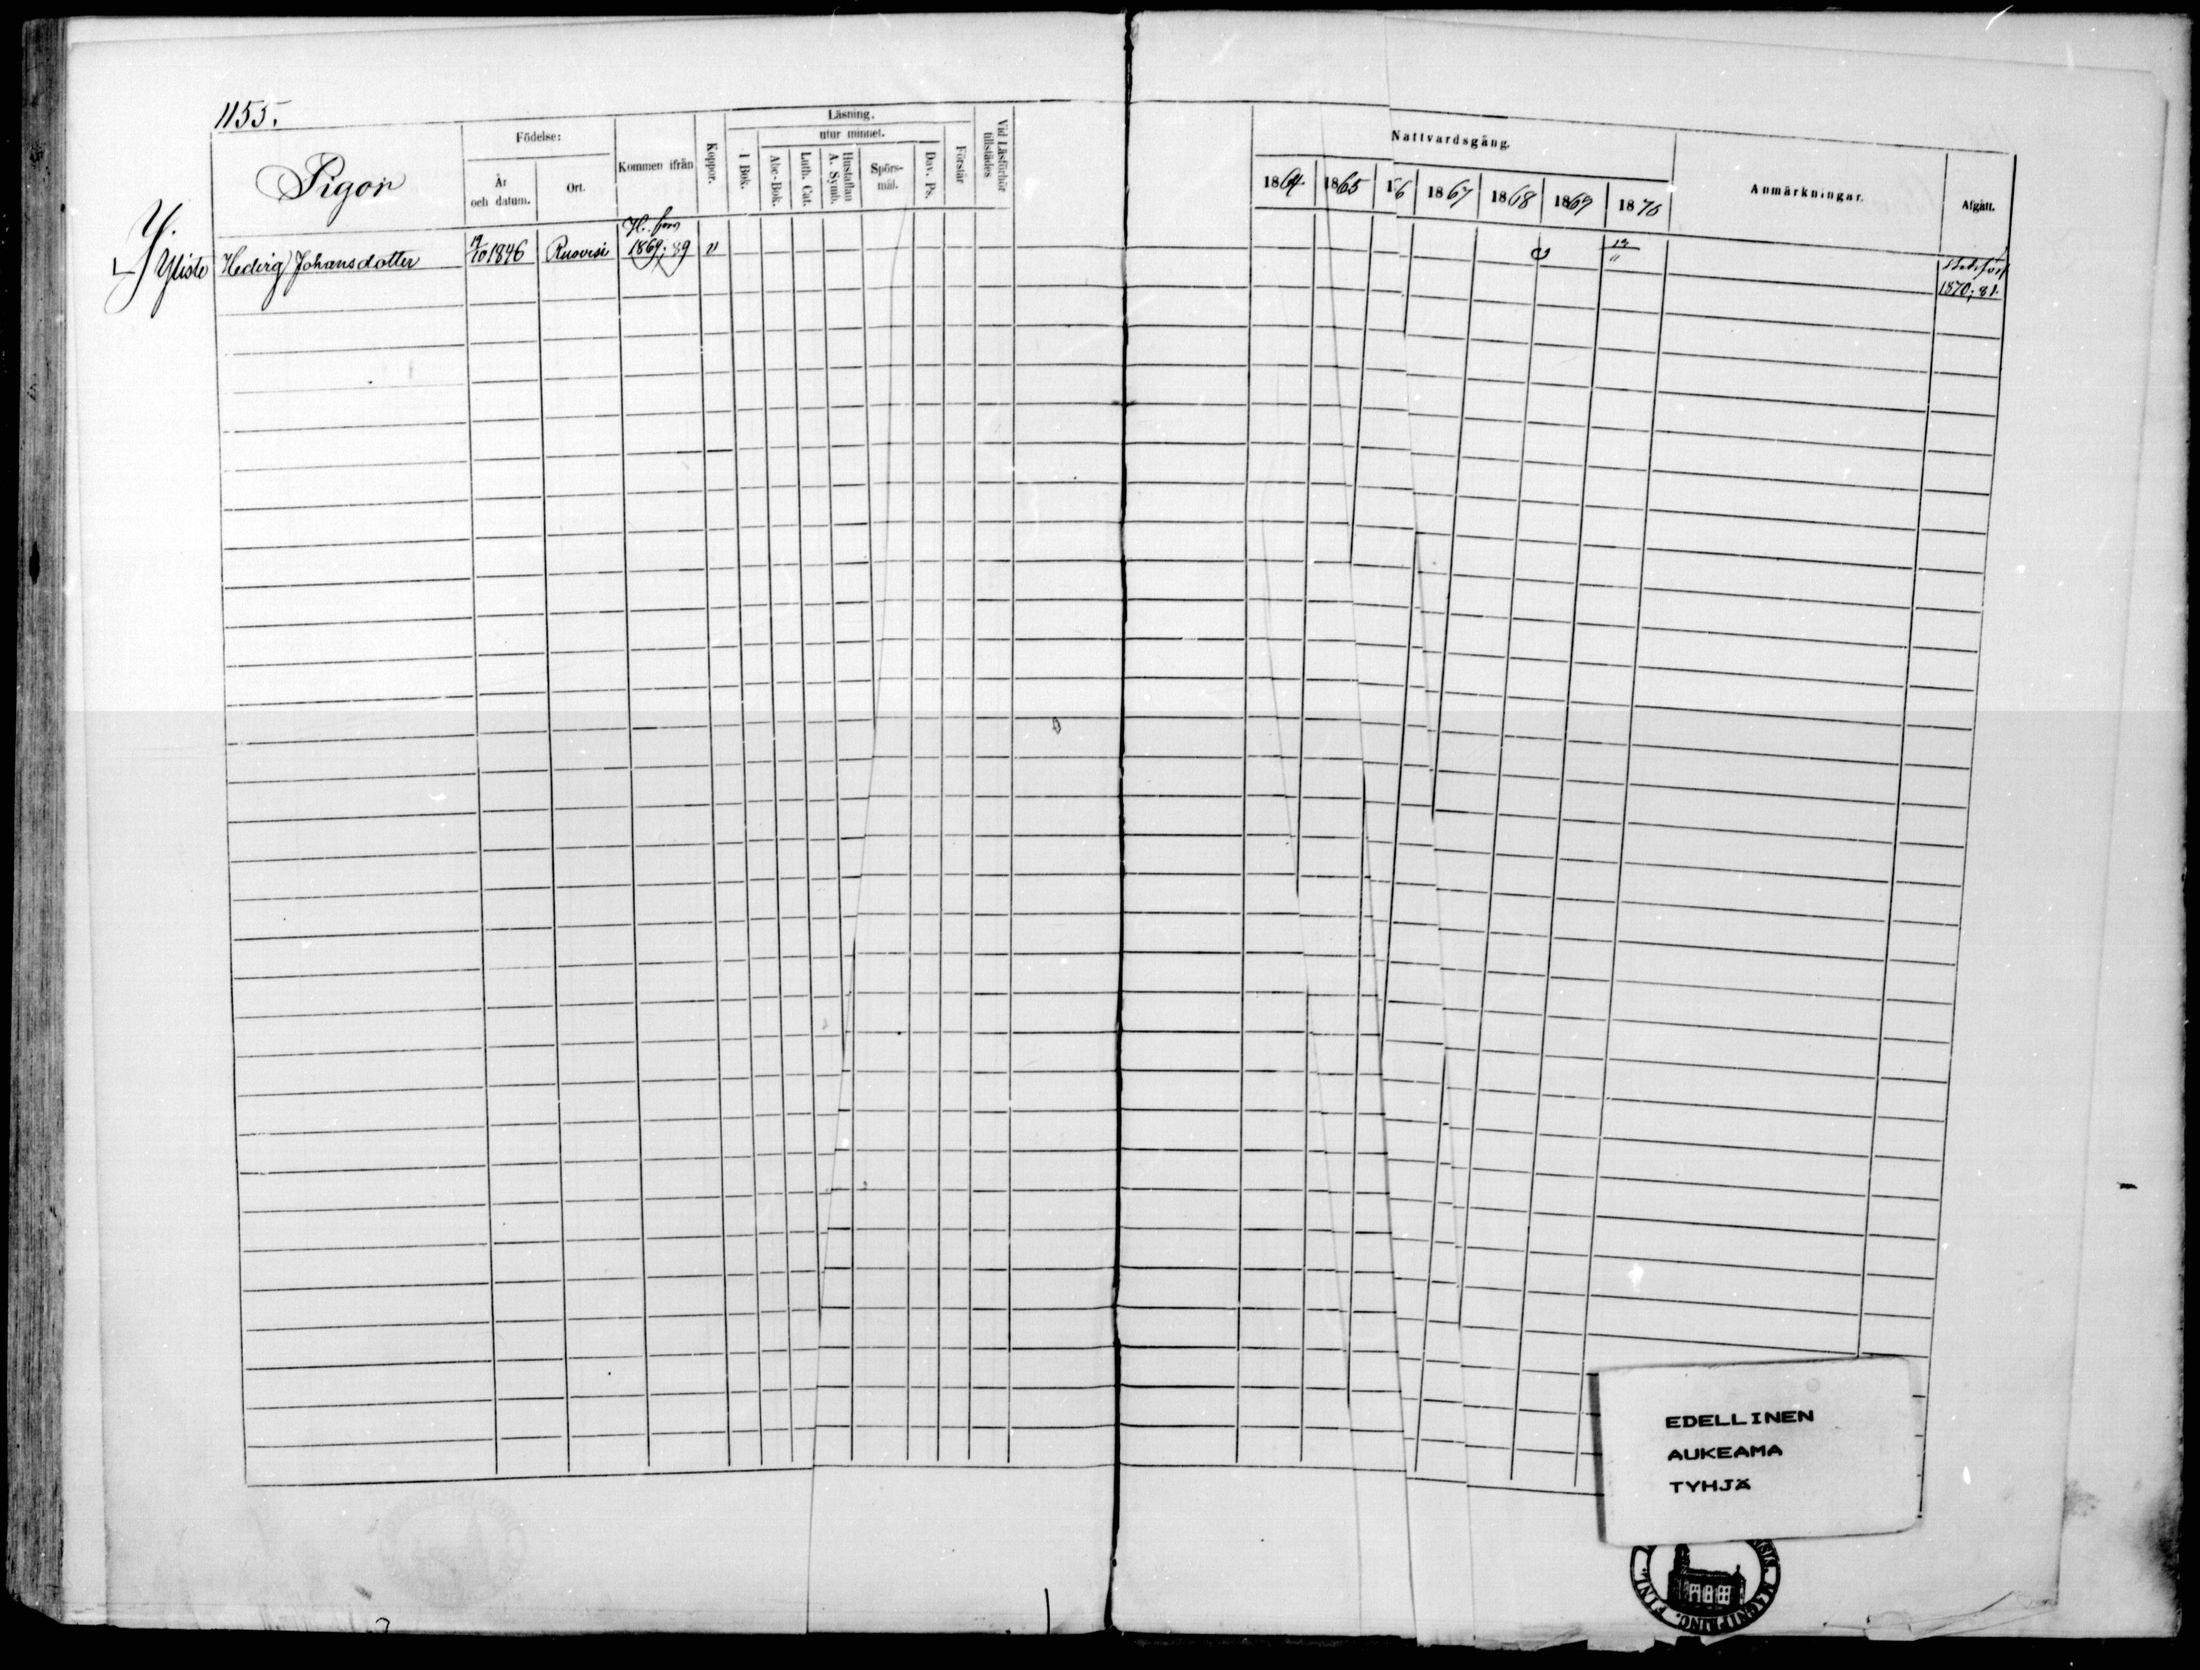 1155.
Pigor
Födelse:
År
och datum.
Ort.
Kommen ifrån
Koppor.
Läsning.
I Bok.
utur minnet.
Abc-Bok.
Luth. Cat.
Hustaflan
A. Symb.
Spörs-
mål.
Dav. Ps.
Förstår
Vid Läsförhör
tillstädes
Nattvardsgång.
1864
1865
1867
1868
1869
1870
Anmärkningar.
Afgått.
Yliste Hedvig Johansdotter
19/10 1846
Rusvesi
1869; 89
v
1870; 81.
EDELLINEN
AUKEAMA
TYHJÄ